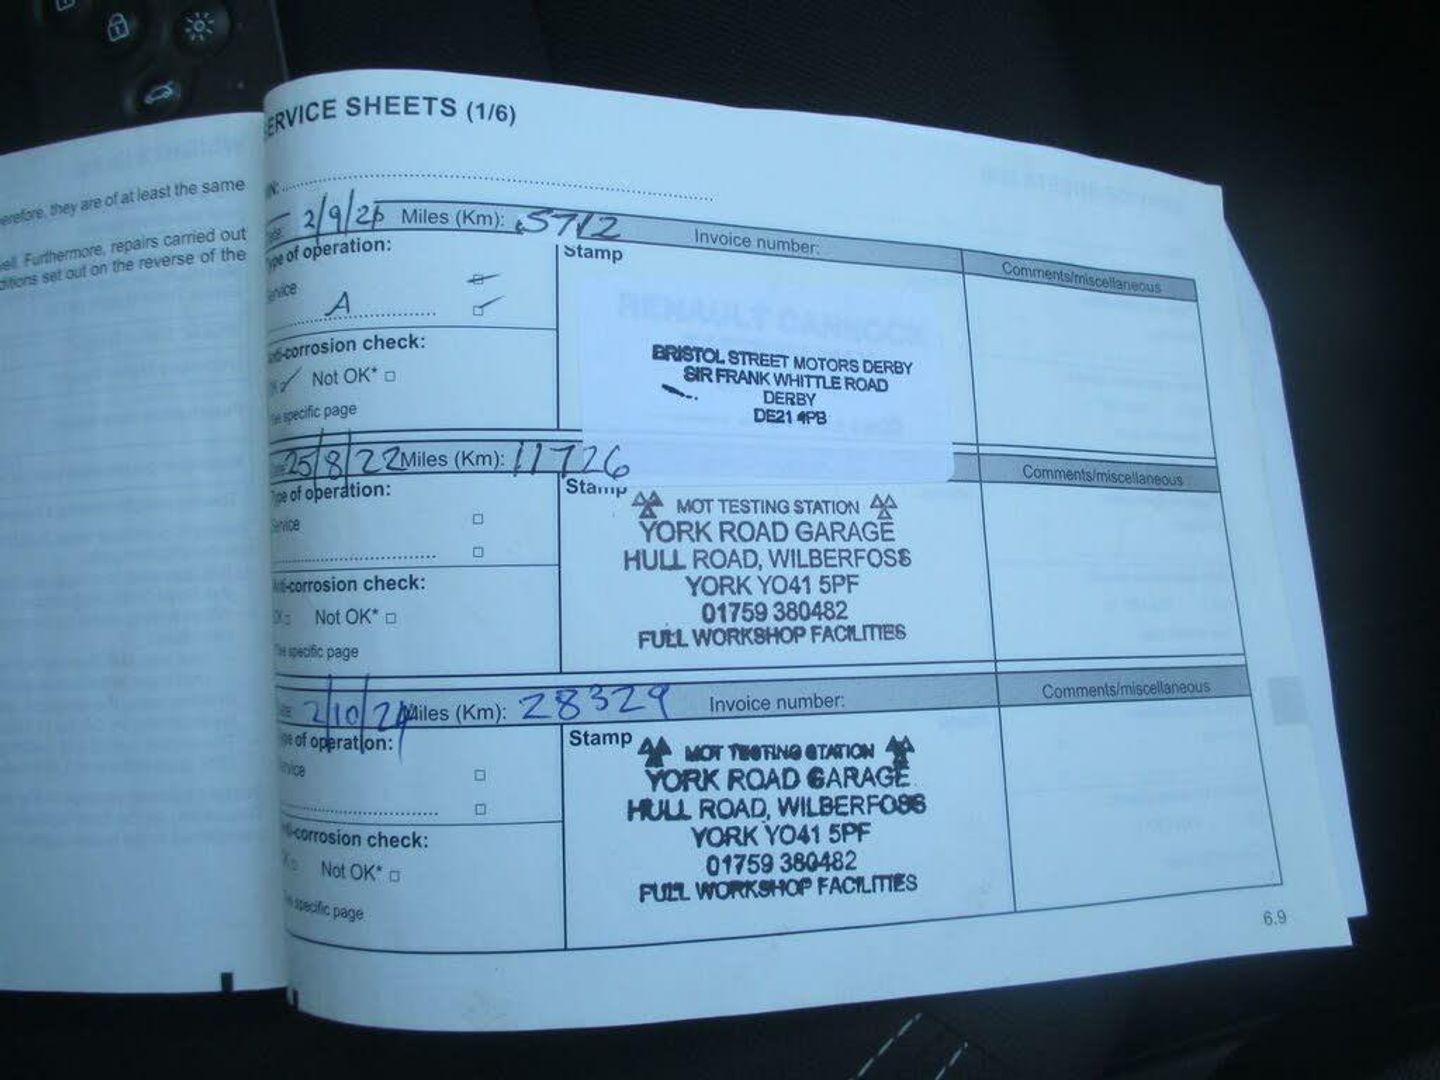 ERVICE SHEETS (1/6)
erefore, they are of at least the same
ell. Furthermore, repairs carried out
ditions set out on the reverse of the
IN:
2/9/21 Miles (Km): 5712 Invoice number:
Comments/miscellaneous
ype of operation:
ervice
A
Stamp
RENAULT CANNOCK
BRISTOL STREET MOTORS DERBY
SIR FRANK WHITTLE ROAD
DERBY
DE21 4PB
nti-corrosion check:
OK Not OK*
he specific page
25/8/22 Miles (Km): 11726
Comments/miscellaneous
Type of operation:
Service
Stamp
MOT TESTING STATION
YORK ROAD GARAGE
HULL ROAD, WILBERFOSS
YORK YO41 5PF
01759 380482
FULL WORKSHOP FACILITIES
Anti-corrosion check:
OK Not OK*
The specific page
2/10/24 Miles (Km): 28329 Invoice number:
Comments/miscellaneous
ype of operation:
ervice
Stamp
MOT TESTING STATION
YORK ROAD GARAGE
HULL ROAD, WILBERFOSS
YORK YO41 5PF
01759 380482
FULL WORKSHOP FACILITIES
i-corrosion check:
OK Not OK*
he specific page
6.9